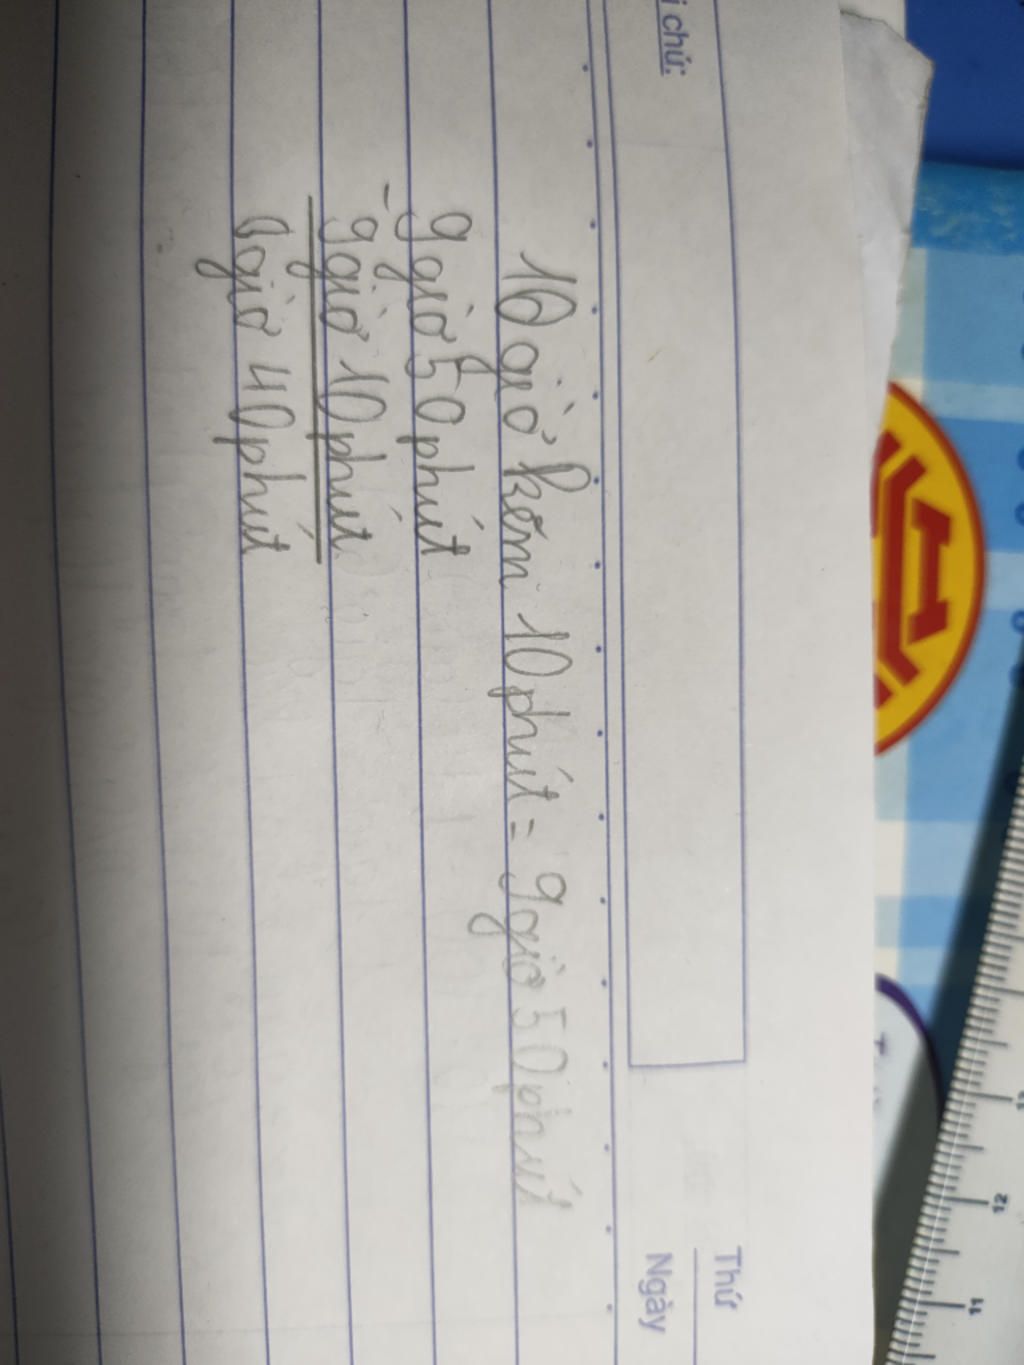 i chú:
Thứ
Ngày
10 giờ kém 10 phút = 9 giờ 50 phút
9 giờ 50 phút
- 9 giờ 10 phút
0 giờ 40 phút
12
11